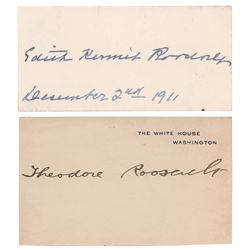 Edith Kermit Roosevelt
December 2nd 1911
THE WHITE HOUSE
WASHINGTON
Theodore Roosevelt